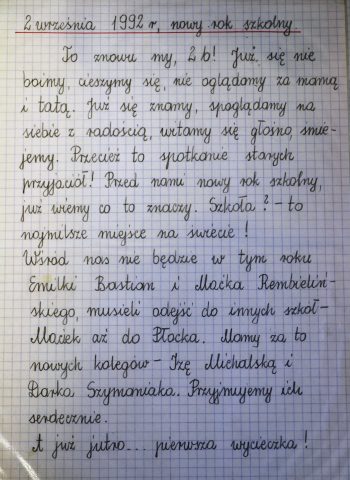 2 września 1992 r, nowy rok szkolny.
To znowu my, 2b! Już się nie
boimy, cieszymy się, nie oglądamy za mamą
i tatą. Już się znamy, spoglądamy na
siebie z radością, witamy się głośno, śmie-
jemy. Przecież to spotkanie starych
przyjaciół! Przed nami nowy rok szkolny,
już wiemy co to znaczy. Szkoła? - to
najmilsze miejsce na świecie!
Wśród nas nie będzie w tym roku
Emilki Bastian i Maćka Rembieliń-
skiego, musieli odejść do innych szkół -
Maciek aż do Płocka. Mamy za to
nowych kolegów - Izę Michalską i
Darka Szymaniaka. Przyjmujemy ich
serdecznie.
A już jutro... pierwsza wycieczka!